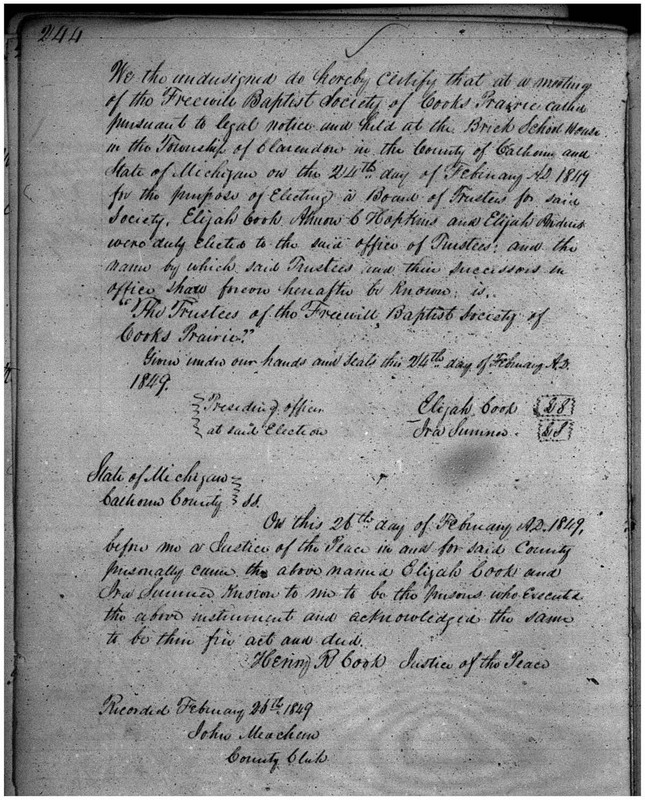 244
We the undersigned do hereby Certify that at a meeting
of the Freewill Baptist Society of Cooks Prairie called
pursuant to legal notice and held at the Brick School House
in the Township of Clarendon in the County of Calhoun and
State of Michigan on the 24th day of February AD 1849
for the purpose of Electing a Board of Trustees for said
Society, Elijah Cook C Hopkins and Elijah Andrus
were duly Elected to the said office of Trustees; and the
name by which said Trustees and their successors in
office shall forever henafter be known: is..
"The Trustees of the Freewill Baptist Society of
Cooks Prairie."
Given under our hands and seals this 24th day of February A.D.
1849.
Presiding officer Elijah Cook LS
at said Election Ira Sumner. LS
State of Michigan
Calhoun County ss.
On this 26th day of February A.D. 1849,
before me a Justice of the Peace in and for said County
personally came the above named Elijah Cook and
Ira Sumner known to me to be the persons who Executed
the above instrument and acknowledged the same
to be their free act and deed.
Henry R Cook Justice of the Peace
Recorded February 26th 1849
John Meachem
County Clerk